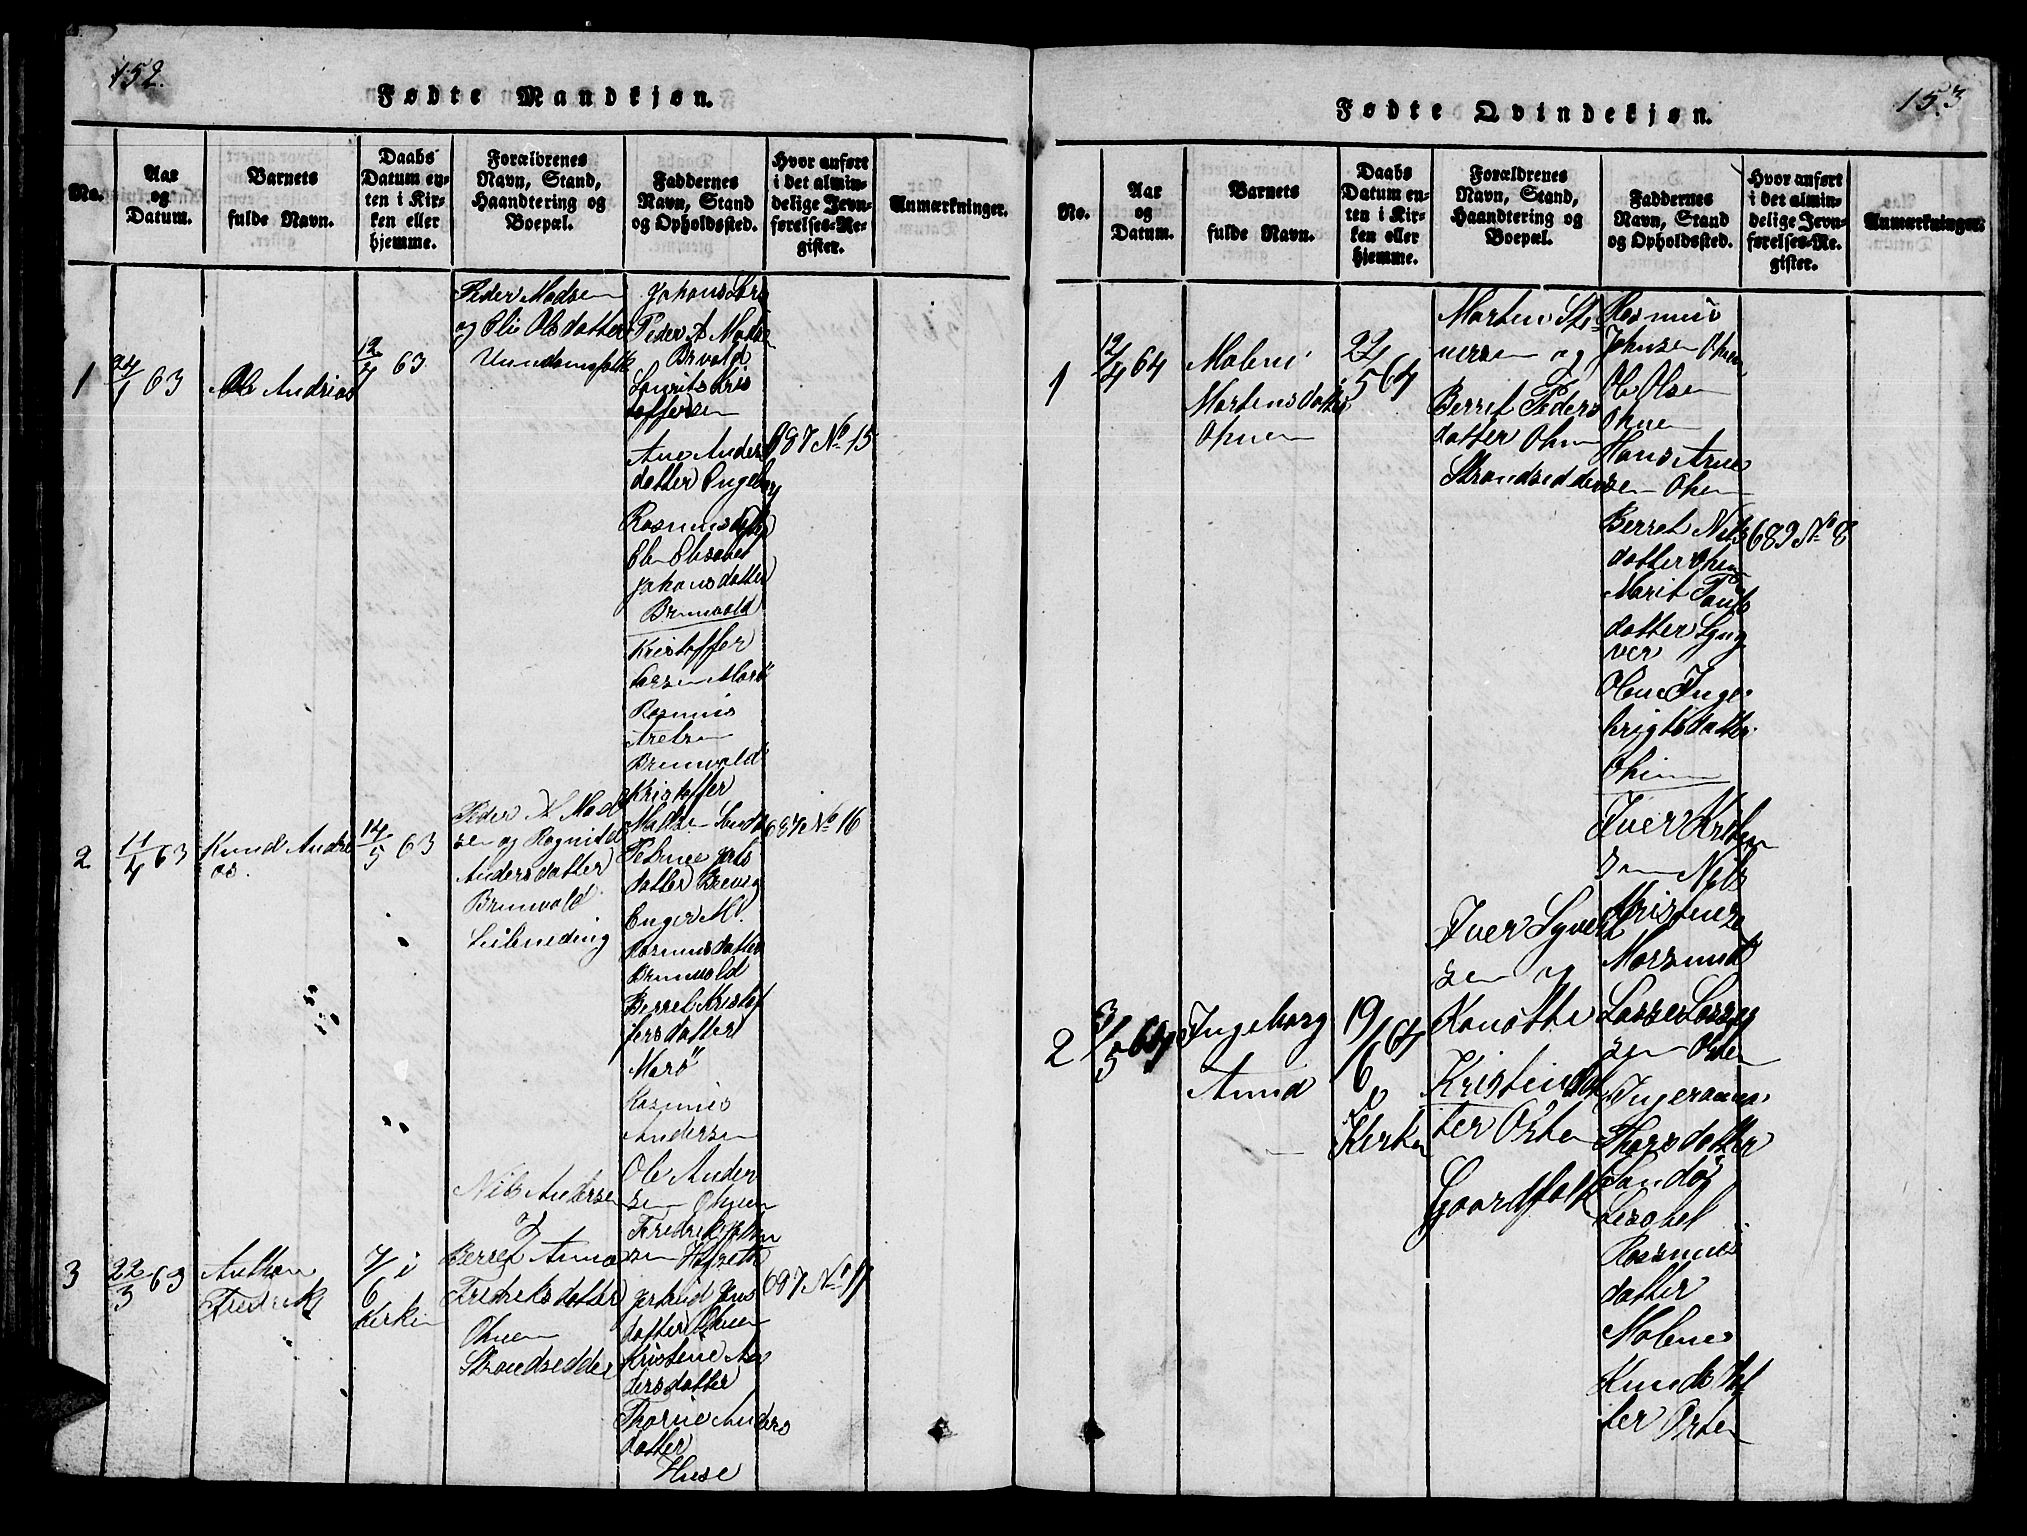 152.
Fødte Mandkjøn.
No.
Aar
og
Datum.
Barnets
fulde Navn.
Daabs
Datum en-
ten i Kir-
ken eller
hjemme.
Forældrenes
Navn, Stand,
Haandtering og
Boepæl.
Faddernes
Navn, Stand
og Opholdssted.
Hvor anført
i det almin-
delige Jevn-
førelses-Re-
gister.
Anmærkninger.
1
24/1 63
Ole Andrias
12/4 63
Peder Madsen
og Elie Olsdatter
Huusmansfolk
Johans Lars
Peder A Madsen
Brevold
Laurits Kris
toffersen
Ane Anders
datter Engeb
Rasmusd
Elen Elesabet
Johansdatter
Brunvold
Kristoffer
Larsen Marø
Rasmus
Brunvold
687 No 15
2
11/4 63
Knud Andre
as.
14/5 63
Peder A Mad
sen og Ragnild
Andersdatter
Brunvold
Kristoffer
Madsen
Petrine
datter
Inger M.
Rasmusdatter
Brunvold
Berret Kristof
fersdatter
Marø
Rasmus
Andersen
687 No 16
3
22/3 63
Anthon
Fredrik
7/6 i
Kerken
Nils Andersen
og
Berret Anna
Fredriksdatter
Ohnen
Strandsedder
Ole Ander
sen Ohnen
Fredrik Johan
sen
Jertrud Jens
datter Ohnen
Kristine An
dersdatter
Thorine Anders
datter
Huse
697 No 17
153
Fødte Qvindekjøn.
No.
Aar
og
Datum.
Barnets
fulde Navn.
Daabs
Datum en-
ten i Kir-
ken eller
hjemme.
Forældrenes
Navn, Stand,
Haandtering og
Boepæl.
Faddernes
Navn, Stand
og Opholdssted.
Hvor anført
i det almin-
delige Jevn-
førelses-Re-
gister.
Anmærkninger.
1
12/4 64
Malene
Martensdatter
Ohnen
22/5 64
Marten Ste
nersen og
Berret Peders
datter Ohn
Strandsedder
Rasmus
Johnsen Ohnen
Ole Olsen
Ohnen
Hans Arne
sen Ohnen
Berret Nils
datter Ohnen
Marit
datter Lyng
ver
Olene Inge
brigtsdatter
Ohnen
689 No 8
2
3/5 64
Ingeborg
Anna
19/6 64
Kerken
Iver Syvert
sen og
Kristendat
ter Østen
Gaardfolk
Iver Kristen
sen Nils
Kristense
Marsund
Lasse Lasse
sen Østen
Ingeranna
Thorsdatter
Sandø
Lesabet
Rasmus
datter
Malene
Knudsdat
ter Østen